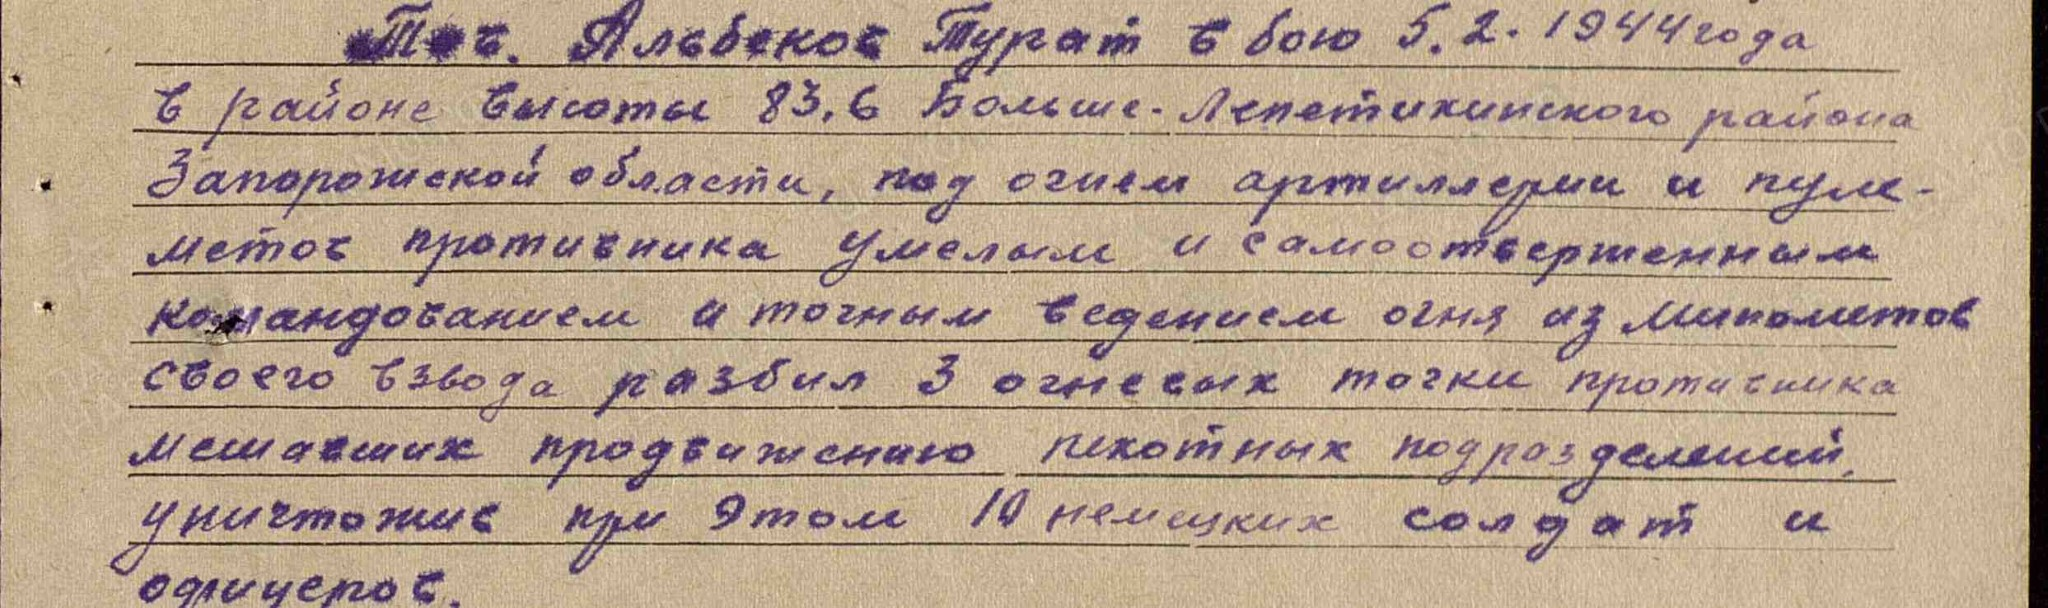 Тов. Альбеков Турат в бою 5.2.1944 года
в районе высоты 83,6 Больше-Лепетихинского района
Запорожской области, под огнем артиллерии и пуле-
метов противника умелым и самоотверженным
командованием и точным ведением огня из минометов
своего взвода разбил 3 огневых точки противника
мешавших продвижению пехотных подразделений,
уничтожив при этом 10 немецких солдат и
офицеров.